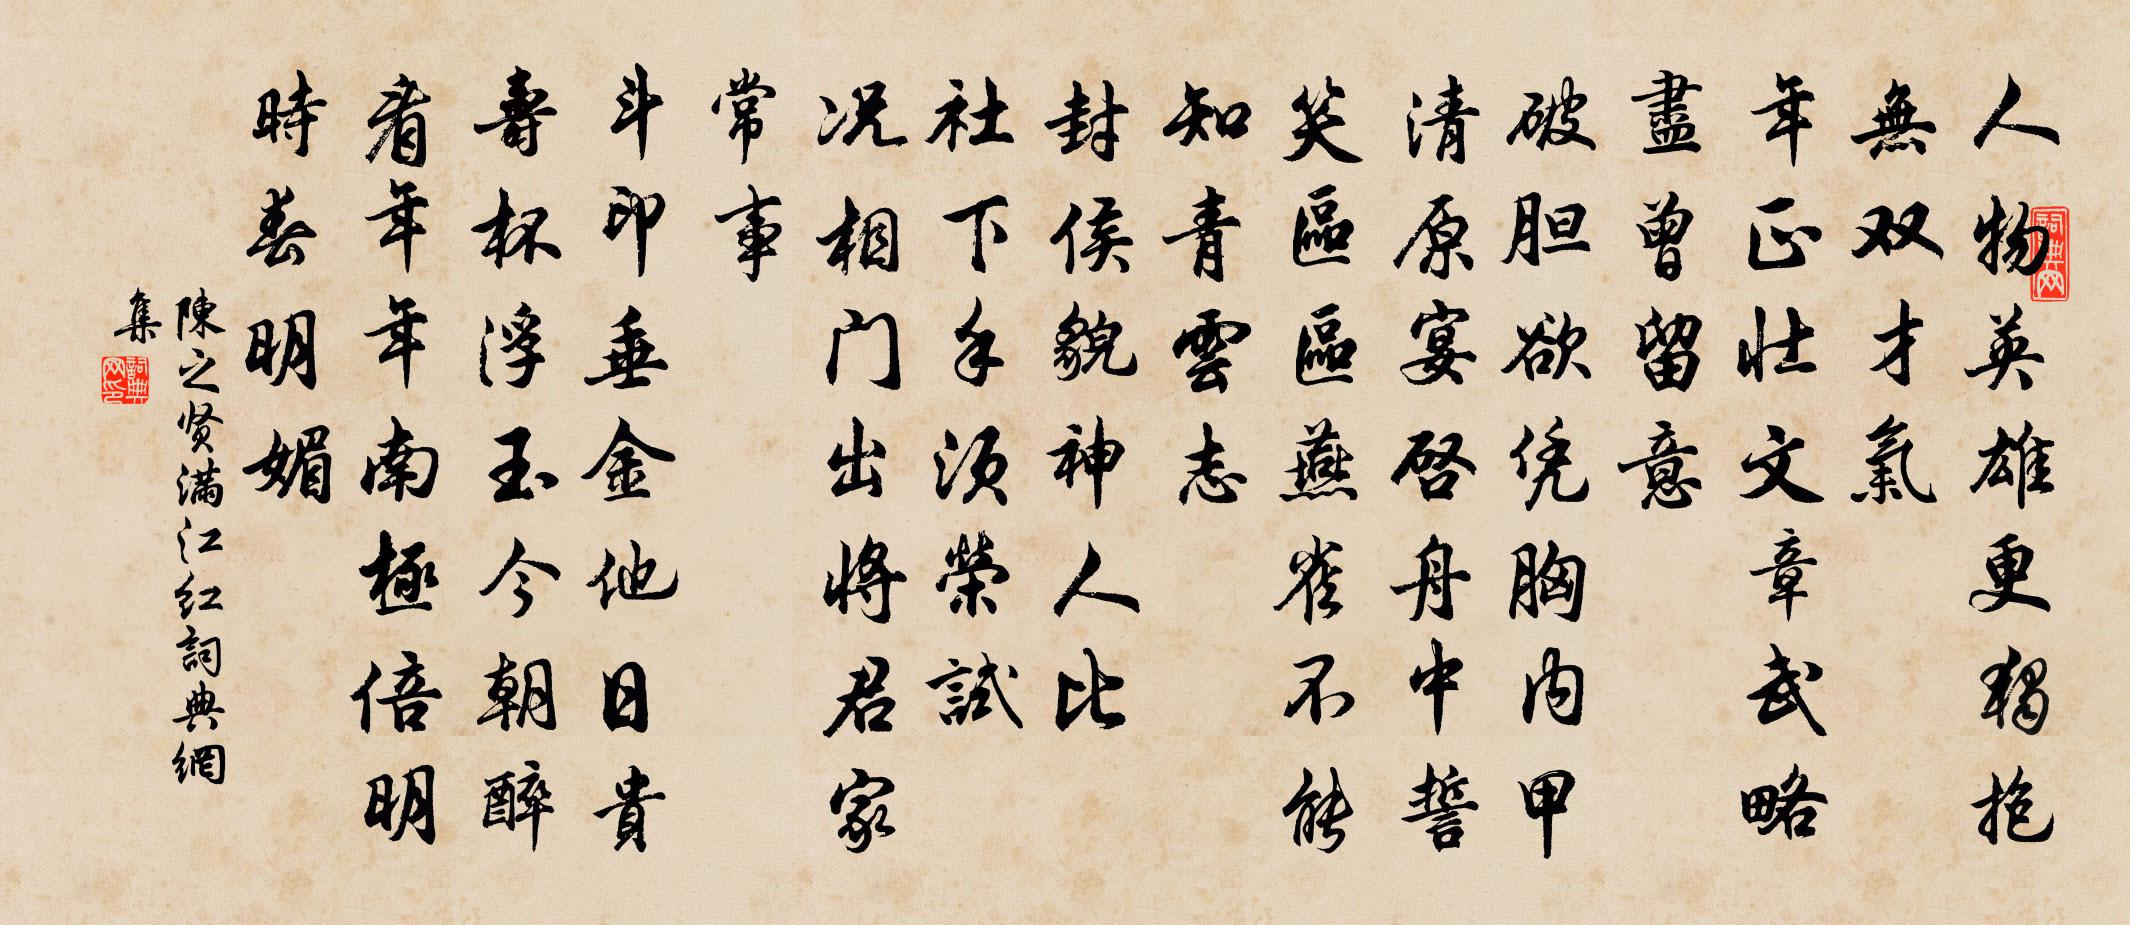 人物英雄更獨抱
無双才氣
年正壯文章武略
盡曾留意
破胆欲凭胸内甲
清原宴啓舟中誓
笑區區燕雀不能
知青雲志
封侯貌神人比
社下手須榮試
况相门出將君家
常事
斗印垂金他日貴
壽杯浮玉今朝醉
看年年南極倍明
時春明媚
陳之贤满江红詞典網
集
詞典网
詞典网印